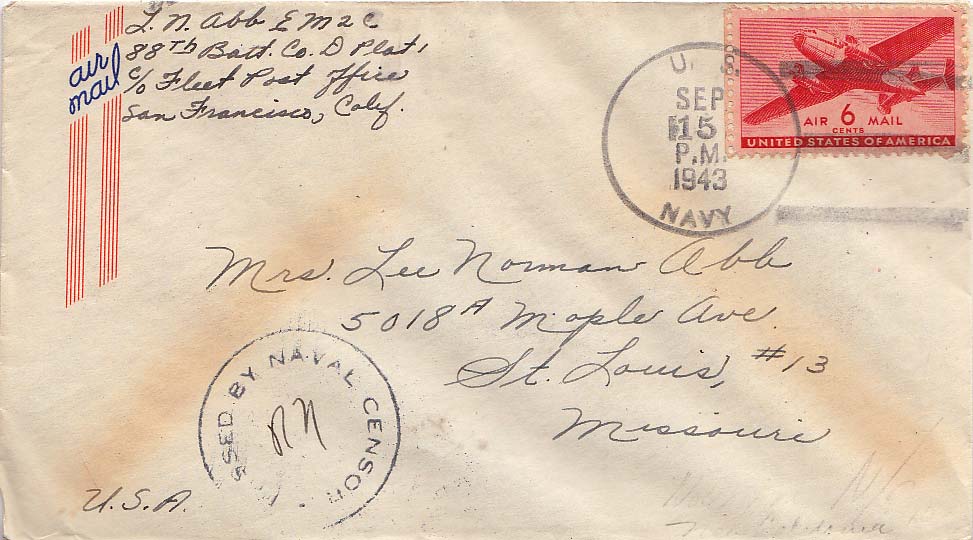 L. N. Abb E M 2 C
88th Batt. Co. D Plat 1
c/o Fleet Post Office
San Francisco, Calif.
air mail
U. S.
SEP
15
P.M.
1943
NAVY
AIR 6 MAIL
CENTS
UNITED STATES OF AMERICA
Mrs. Lee Norman Abb
5018A Maple Ave.
St. Louis, #13
Missouri
SSED BY NAVAL CENSOR
U.S.A.